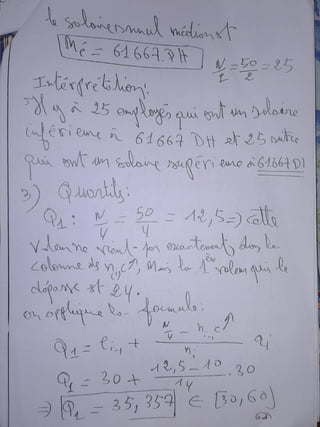 le salaire annuel médian est
Mé = 61667.DH
N/2 = 50/2 = 25
Intérprétation:
Il y à 25 employés qui ont un salaire
inférieure à 61667 DH et 25 autre
qui ont un salaire supérieure à 61667 DH
3) Quartils:
Q1: N/4 = 50/4 = 12,5 => Cette
valeur ne vient pas exactement dans la
colonne des ni c↑, Mais la 1ère valeur qui le
dépasse est 24.
on applique la formule:
Q1 = li-1 + (N/4 - ni-1 c↑)/ni ai
Q1 = 30 + (12,5 - 10)/14 . 30
=> Q1 = 35,357 ∈ [30,60[